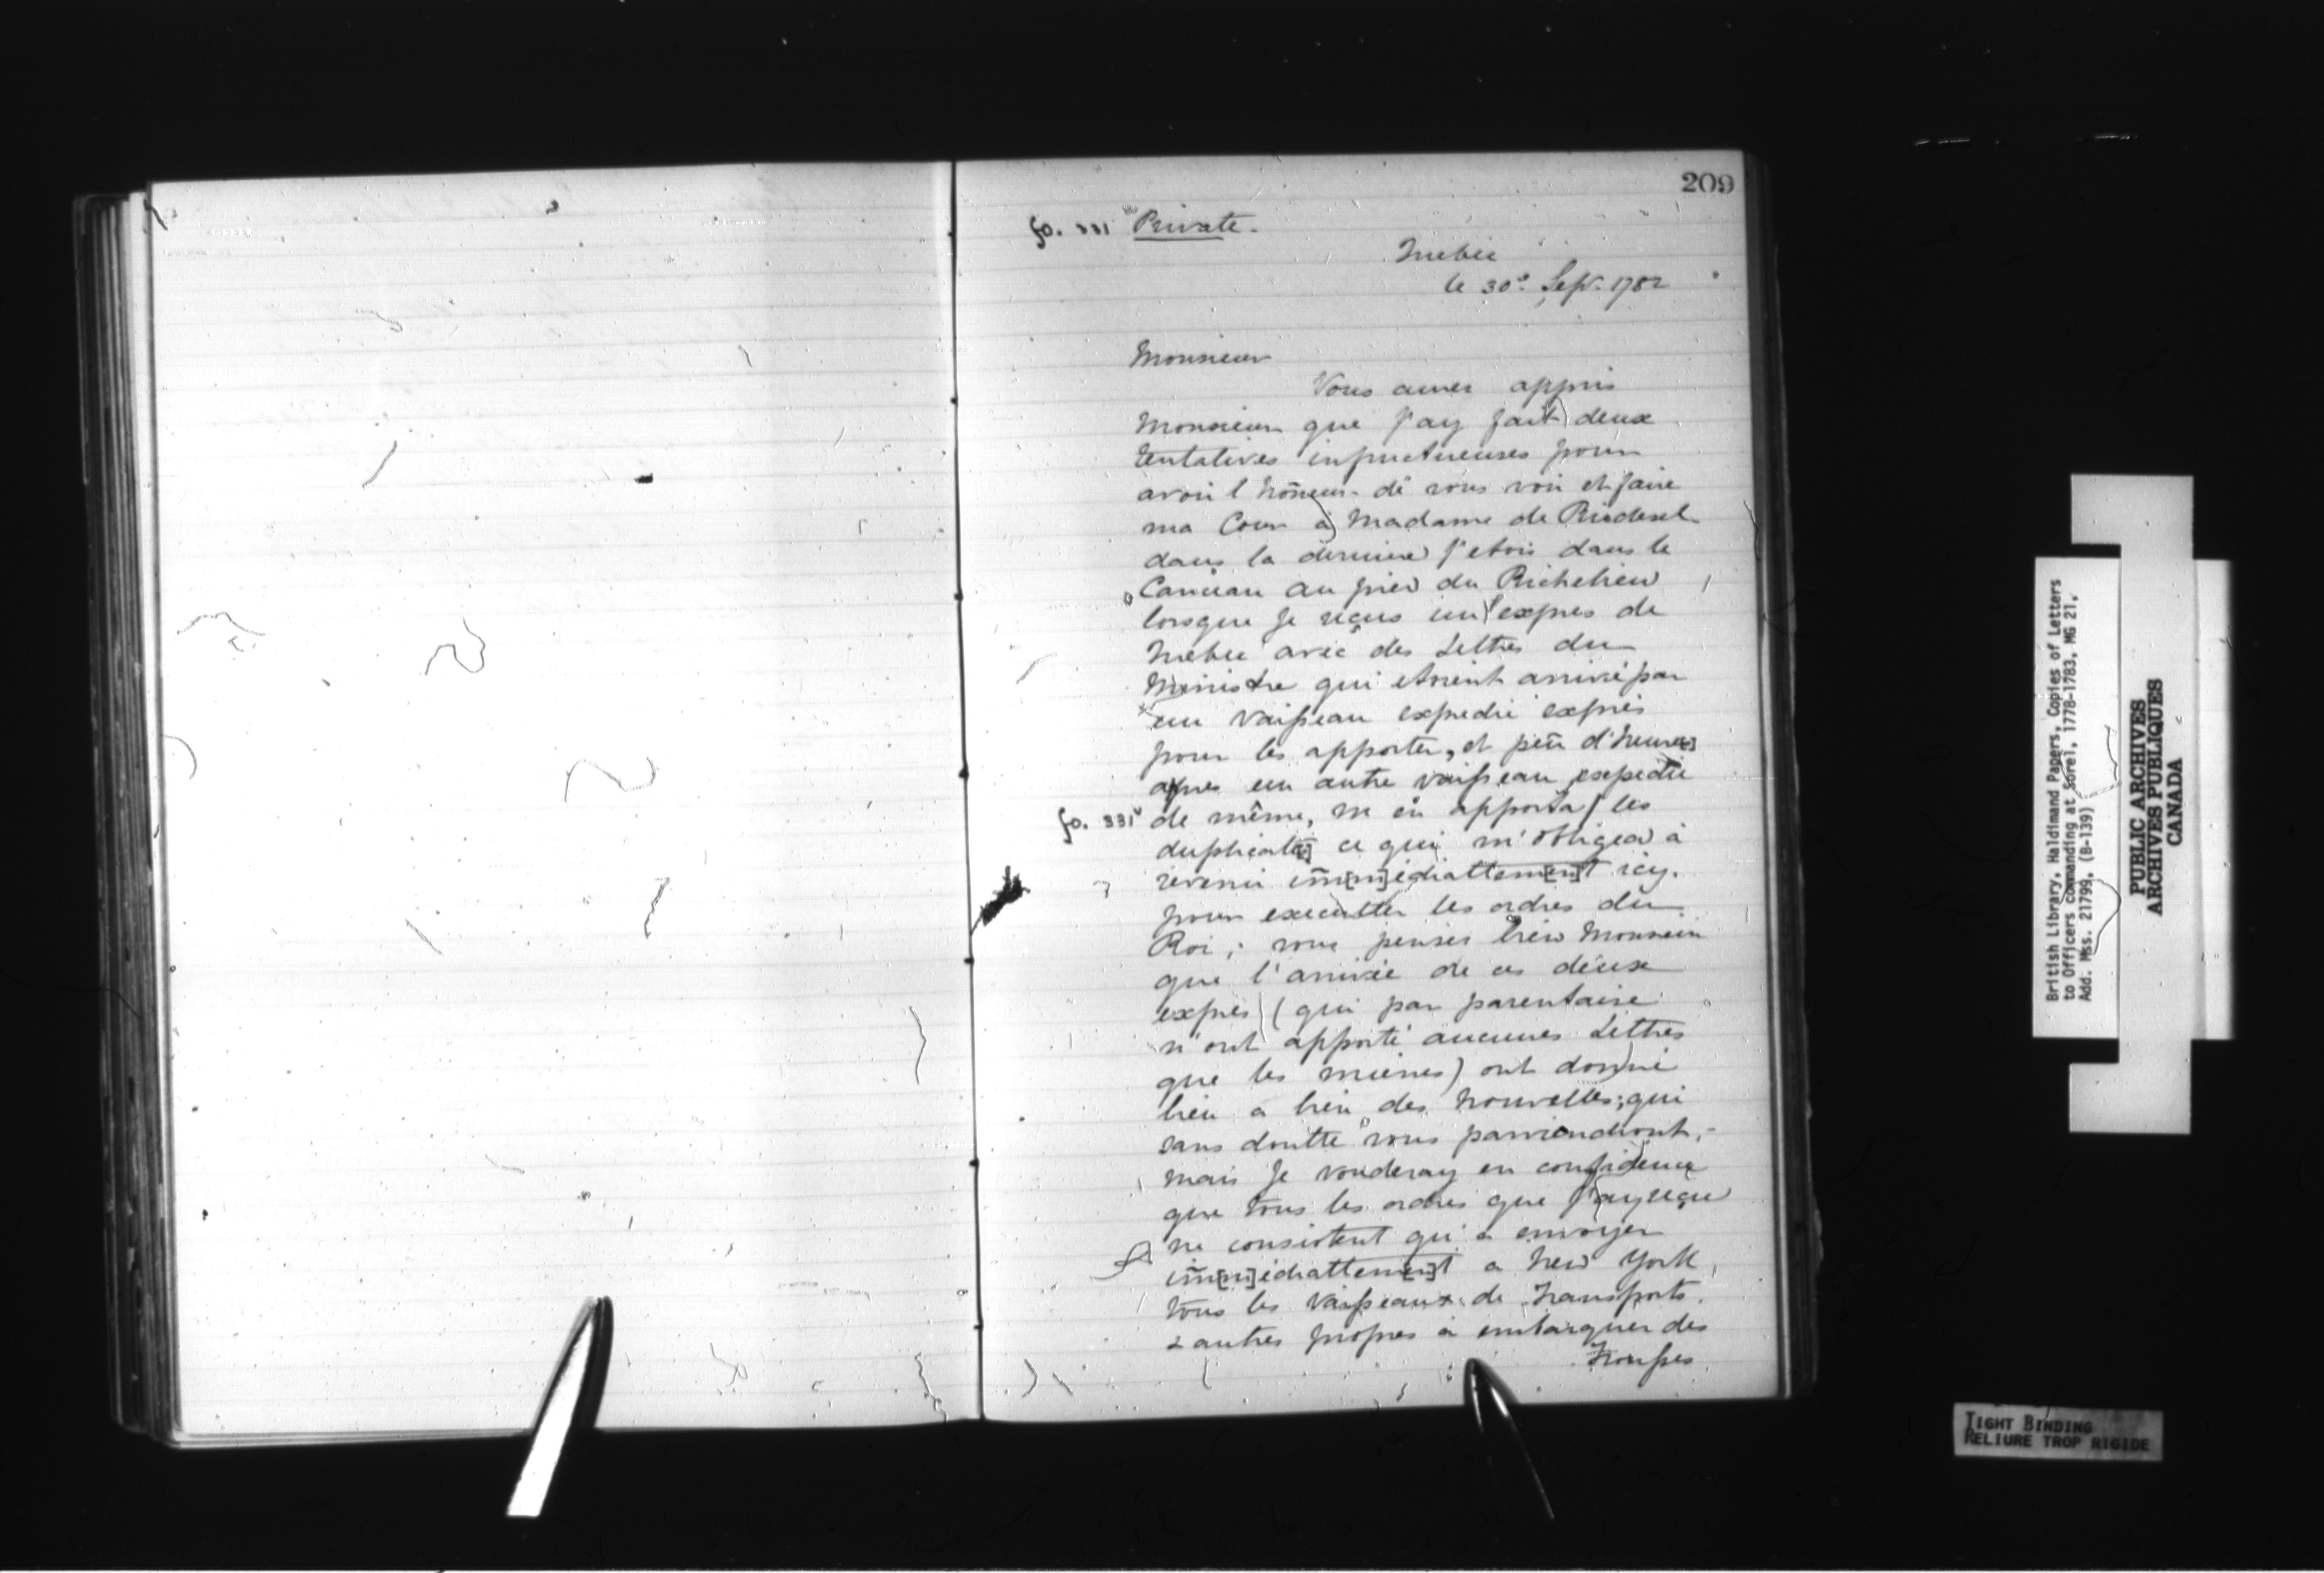 209
fo. 331 Private.
Quebec
le 30e Sepr. 1782
Monsieur
Vous aurez appris
Monsieur que J'ay fait deux
tentatives infructueuses pour
avoir l'hõneur de vous voir et faire
ma Cour à Madame de Riedesel
dans la derniere J'etois dans le
au pied du Richelieu
lorsque Je reçus un expres de
Quebec avec des Lettres du
Ministre qui etoient arrivé par
un Vaisseau expedié exprès
pour les apporter, et peu d'heure[s]
apres un autre vaisseau expedié
fo. 331v de même, m'en apporta / les
duplicate[s] ce qui m'obligea à
revenir im̃[m]ediattem[en]t icy.
pour executter les ordres du
Roi; vous penses bien Monsieur
que l'arrivée de ces deux
expres (qui par parentaise
n'ont apporté aucunes Lettres
que les mienes) ont donné
lieu a bien des Nouvelles; qui
sans doutte vous parviendront,-
mais Je vouderay en confidence
que tous les ordres que J'ay reçu
ne consistent qu'a envoyer
im̃[m]ediattem[en]t a New York,
tous les Vaisseaux de Transports
& autres propres à embarquer des
Troupes
British Library, Haldimand Papers, Copies of Letters
to Officers commanding at Sorel, 1778-1783, MG 21,
Add. Mss. 21799, (B-139)
PUBLIC ARCHIVES
ARCHIVES PUBLIQUES
CANADA
TIGHT BINDING
RELIURE TROP RIGIDE